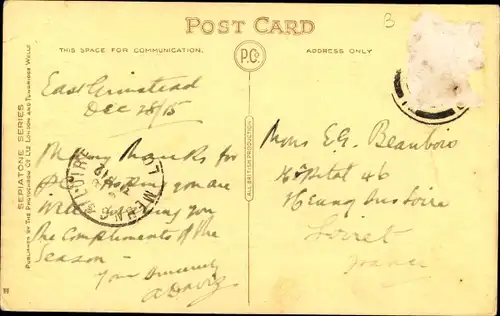 POST CARD
THIS SPACE FOR COMMUNICATION.
P.C.
ADDRESS ONLY
3
SEPIATONE SERIES
PUBLISHED BY THE PHOTOCHROM CO. LTD. LONDON AND TUNBRIDGE WELLS
ALL BRITISH PRODUCTION
East Grinstead
Dec 28/15
Many Thanks for
P.C. Hoping you are
Well wishing you
the Compliments of the
Season
Your Sincerely
A Davis
Mons E.G. Beaubois
Hôpital 46
Meung sur Loire
Loiret
France